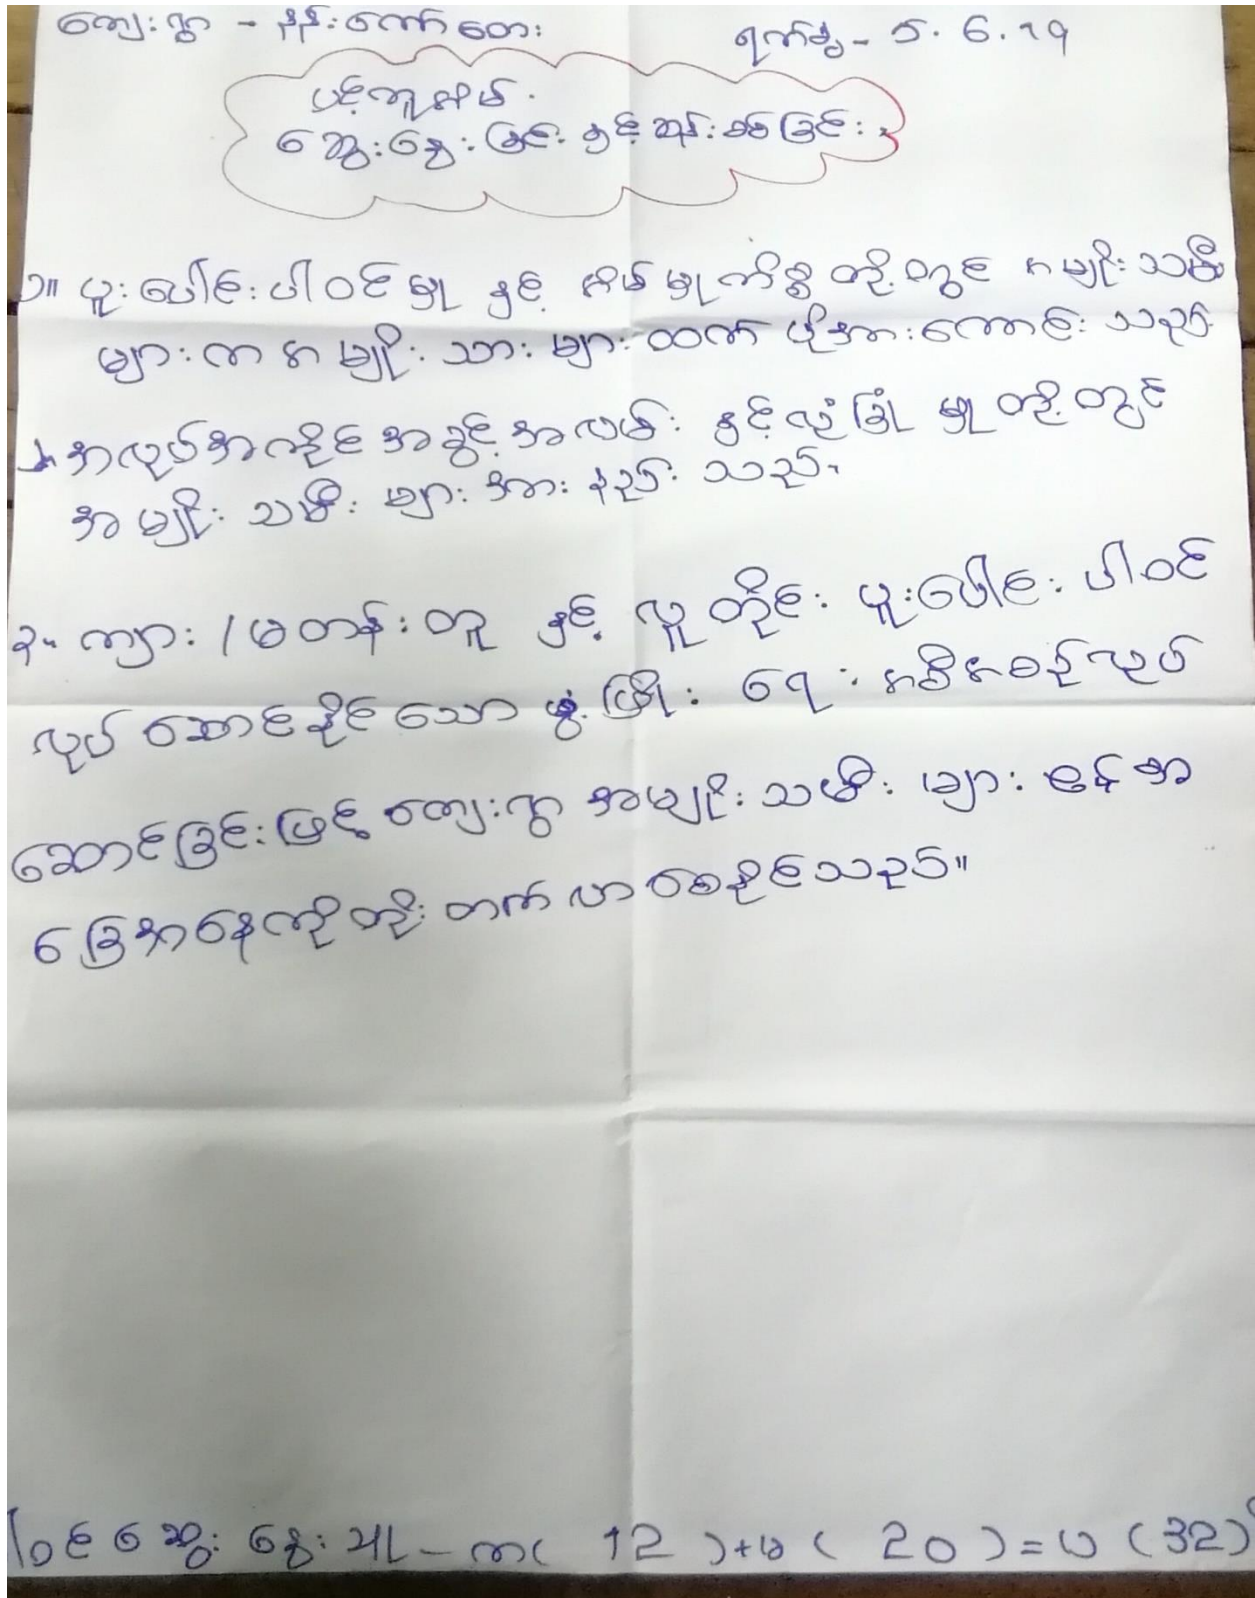 ကျေးရွာ - နန်းကော်တေး ရက်စွဲ - 5.6.19
ပင့်ကူအိမ်
ဆွေးနွေးခြင်း နှင့် ဆန်းစစ်ခြင်း။
၁။ ပူးပေါင်းပါဝင်မှု နှင့် အိမ်မှုကိစ္စတို့တွင် အမျိုးသမီး
များက အမျိုးသားများထက် ပိုအားကောင်းသည်
၂။ အလုပ်အကိုင်အခွင့်အလမ်း နှင့် လုံခြုံမှုတို့တွင်
အမျိုးသမီးများ အားနည်းသည်။
၃။ ကျား/မတန်းတူ နှင့် လူတိုင်း ပူးပေါင်းပါဝင်
လုပ်ဆောင်နိုင်သော ဖွံ့ဖြိုးရေး အစီအစဉ်လုပ်
ဆောင်ခြင်းဖြင့် ကျေးရွာအမျိုးသမီးများ၏ အ
ခြေအနေကိုတိုးတက်လာစေနိုင်သည်။
ဝင်ဆွေးနွေးသူ - က ( 12 ) + မ ( 20 ) = ပ ( 32 )